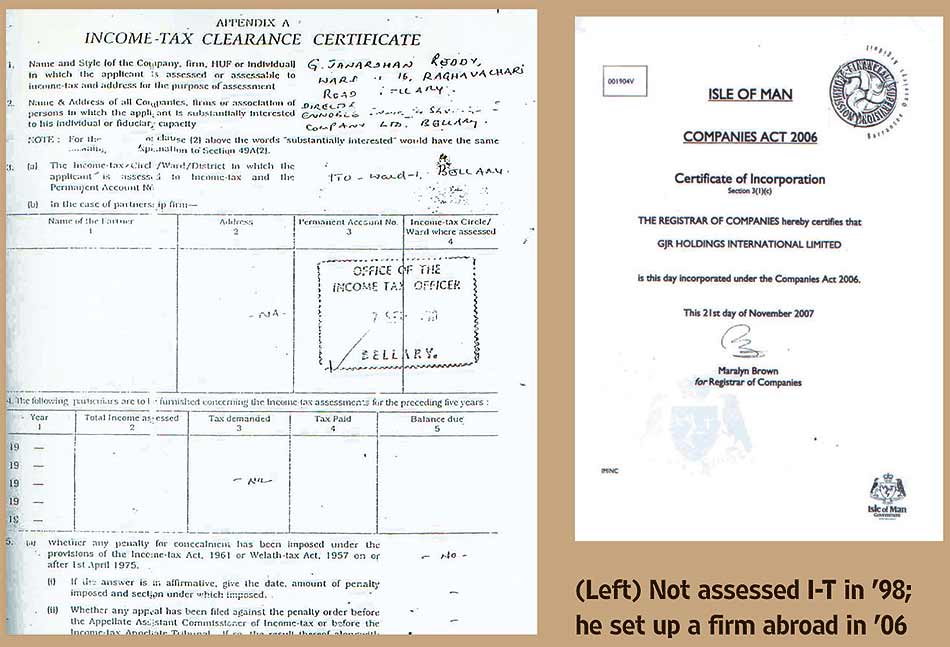 APPENDIX A
INCOME-TAX CLEARANCE CERTIFICATE
1. Name and Style (of the Company, firm, HUF or Individual)
in which the applicant is assessed or assessable to
income-tax and address for the purpose of assessment
G. JANARDHAN REDDY,
WARD 16, RAGHAVACHARI
ROAD BELLARY.
2. Name & Address of all Companies, firms or association of
persons in which the applicant is substantially interested
to his individual or fiduciary capacity
DIRECTOR
COMPANY LTD. BELLARY.
NOTE : For the clause (2) above the words "substantially interested" would have the same
to Section 49A(2).
3. (a) The Income-tax Circle/Ward/District in which the
applicant is assessed to Income-tax and the
Permanent Account No.
ITO - Ward-1, BELLARY.
(b) In the case of partnership firm—
Name of the Partner
1
Address
2
Permanent Account No.
3
Income-tax Circle/
Ward where assessed
4
- NA -
OFFICE OF THE
INCOME TAX OFFICER
BELLARY.
4. The following particulars are to be furnished concerning the Income-tax assessments for the preceding five years :
Year
1
Total Income assessed
2
Tax demanded
3
Tax Paid
4
Balance due
5
19 —
19 —
19 —
19 —
19 —
- NIL -
5. (a) Whether any penalty for concealment has been imposed under the
provisions of the Income-tax Act, 1961 or Welath-tax Act, 1957 on or
after 1st April 1975.
- NO -
(i) If the answer is in affirmative, give the date, amount of penalty
imposed and section under which imposed.
–
(ii) Whether any appeal has been filed against the penalty order before
the Appellate Assistant Commissioner of Income-tax or before the
Income-tax Appellate Tribunal. If so, the result thereof
–
001904V
FINANCIAL SUPERVISION COMMISSION
ISLE OF MAN
COMPANIES ACT 2006
Certificate of Incorporation
Section 3(1)(c)
THE REGISTRAR OF COMPANIES hereby certifies that
GJR HOLDINGS INTERNATIONAL LIMITED
is this day incorporated under the Companies Act 2006.
This 21st day of November 2007
Maralyn Brown
for Registrar of Companies
IMINC
Isle of Man
Government
(Left) Not assessed I-T in ’98;
he set up a firm abroad in ’06